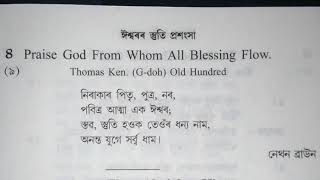 ঈশ্বৰৰ স্তুতি প্ৰশংসা
8 Praise God From Whom All Blessing Flow.
(৯) Thomas Ken. (G-doh) Old Hundred
নিৰাকাৰ পিতৃ, পুত্ৰ, নৰ,
পবিত্ৰ আত্মা এক ঈশ্বৰ;
স্তৱ, স্তুতি হওক তেওঁৰ ধন্য নাম,
অনন্ত যুগে সৰ্ব্ব ধাম।
নেথন ব্ৰাউন